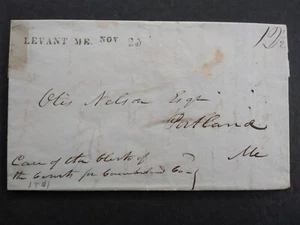 LEVANT ME. NOV 25
12½
Otis Nelson Esqr
Portland
Me
Care of the Clerk of
the Courts for Cumberland Co